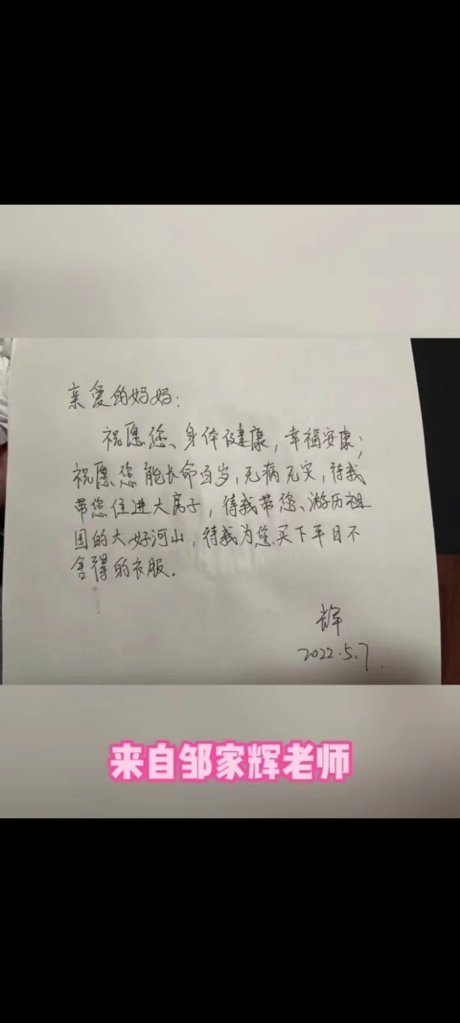 亲爱的妈妈：
祝愿您、身体健康，幸福安康；
祝愿您能长命百岁，无病无灾，待我
带您住进大房子，待我带您、游历祖
国的大好河山，待我为您买下平日不
舍得的衣服。
辉
2022.5.7.
来自邹家辉老师